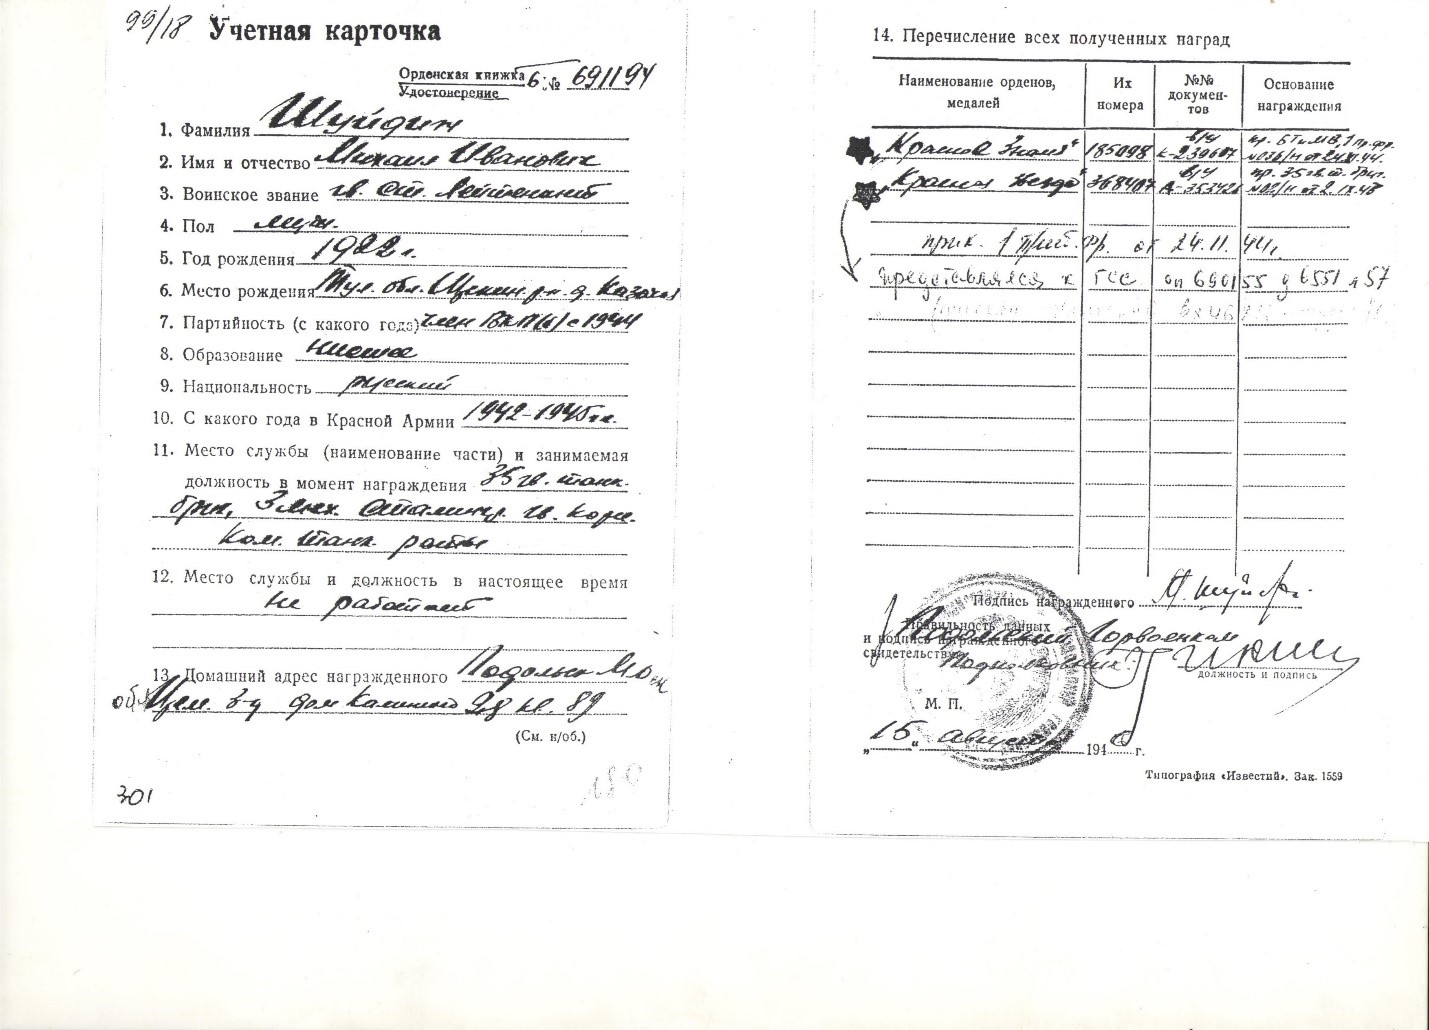 99/18 Учетная карточка
Орденская книжка
Удостоверение Б. № 691194
1. Фамилия Шуйдин
2. Имя и отчество Михаил Иванович
3. Воинское звание гв. ст. лейтенант
4. Пол муж.
5. Год рождения 1922 г.
6. Место рождения Тул. обл. Щекин. р-н д. Казачья
7. Партийность (с какого года) член ВКП(б) с 1944
8. Образование низшее
9. Национальность русский
10. С какого года в Красной Армии 1942-1945 гг.
11. Место службы (наименование части) и занимаемая
должность в момент награждения 35 гв. танк.
бриг, 3 мех. Сталингр. гв. корп.
Ком. танк. роты
12. Место службы и должность в настоящее время
не работает
13. Домашний адрес награжденного Подольск Моск
обл. Цем. з-д дом Калинина 28 кв. 89
(См. н/об.)
301
180
14. Перечисление всех полученных наград
Наименование орденов, медалей
Их номера
№№ документов
Основание награждения
„Красное Знамя" 185098 в/у К-239607 пр. БТ и МВ, 1 Пр. фр. №036/н от 24.11.44.
„Красная Звезда" 368407 в/у А-353426 пр. 35 гв. т. бриг. №02/н от 2. 9.43
прик. 1 приб. фр. от 24.11. 44г.
представлялся к ГСС оп 690155 д 6551 л 57
Подпись награжденного М. Шуйдин
Правильность данных
и подпись награжденного
свидетельствую Подольский Горвоенком
Подполковник
должность и подпись
М. П.
„15" август 194 г.
Типография «Известий». Зак. 1559